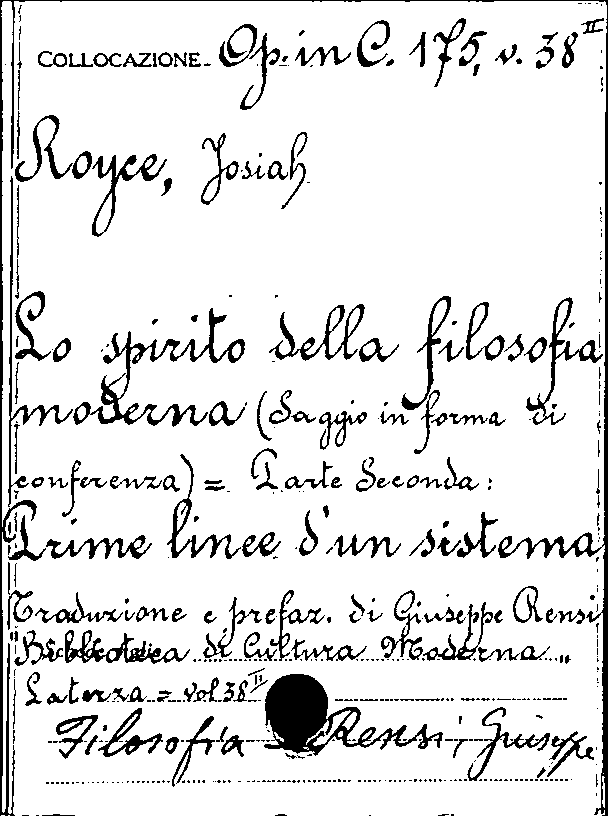 COLLOCAZIONE Op. in C. 175, v. 38 II
Royce, Josiah
Lo spirito della filosofia
moderna (Saggio in forma di
conferenza) = Parte Seconda:
Prime linee d'un sistema
Traduzione e prefaz. di Giuseppe Rensi
"Biblioteca di Cultura Moderna"
Laterza = vol 38 II
Filosofia Rensi, Giuseppe